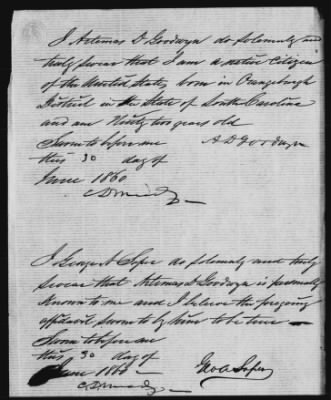 I Artemas D Goodwyn do solemnly and
truly swear that I am a native Citizen
of the United States, born in Orangeburgh
District in the State of South Carolina
and am thirty two years old
Sworn to before me A D Goodwyn
this 30 day of
June 1860

I George A Soper do solemnly and truly
swear that Artemas D Goodwyn is personally
Known to me and I believe the foregoing
affidavit sworn to by him to be true
Sworn to before me
this 30 day of
June 1860 Geo A Soper